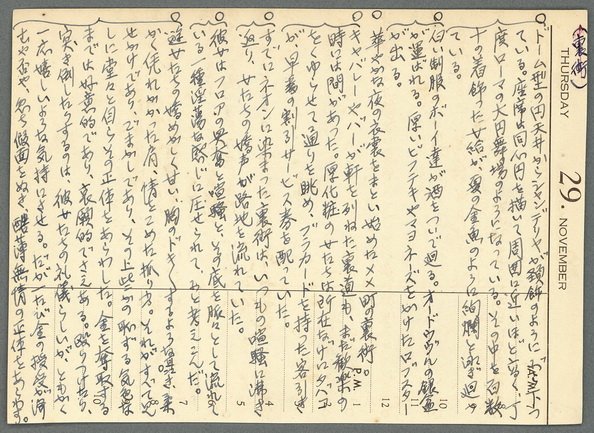 (裏街)
THURSDAY 29. NOVEMBER
○ドーム型の円天井からシャンデリヤが頸飾のように下っ
ている。座席は同心円を描いて周囲に近いほど高く、丁
度ローマの大円舞場のようになっている。その中を百数
十の着飾った女給が夏の金魚のように絢爛と泳ぎ廻っ
ている。
○白い制服のボーイ達が酒をついで廻る。オードウヴルの銀皿
が運ばれる。厚いビフテキやマヨネーズをかけたロブスター
が出る。
○華やかな夜の衣裳をまとい始めた 町の裏街。
○キャバレーやバーが軒を列ねた裏通りも、まだ歓楽の
時には間があった。厚化粧の女たちは所在なげにタバコ
をくゆらせて通りを眺め、プラカードを持った客引き
が、早春の割るサービス券を配っていた。
○すでにネオンに染まった裏街は、いつもの喧騒に沸き
返り、女たちの嬌声が路地を流れていた。
○彼はフロアの興奮と喧騒と、その底を脈々として流れて
いる一種淫蕩な感じに圧せられて、
○遊女たちの嬌めかしく甘い、胸のドキ〳〵するような
かく、情をこめた そがすべて
せかけであり、ごまかしであり、その上些かの恥ずる気色な
しに堂々と自らその正体をあらわした。金を奪取する
までは好意的であり、哀願的でさえある。
突き倒したりするのは、彼女たちの礼儀らしいが、ともかく
一応嬉しいような気持にさせる。だが一たび金の授受が済
むや否や、忽ち仮面をぬぎ、酷薄無情の正体をあらわす。
P.M.
1
12
11
10
4
5
7